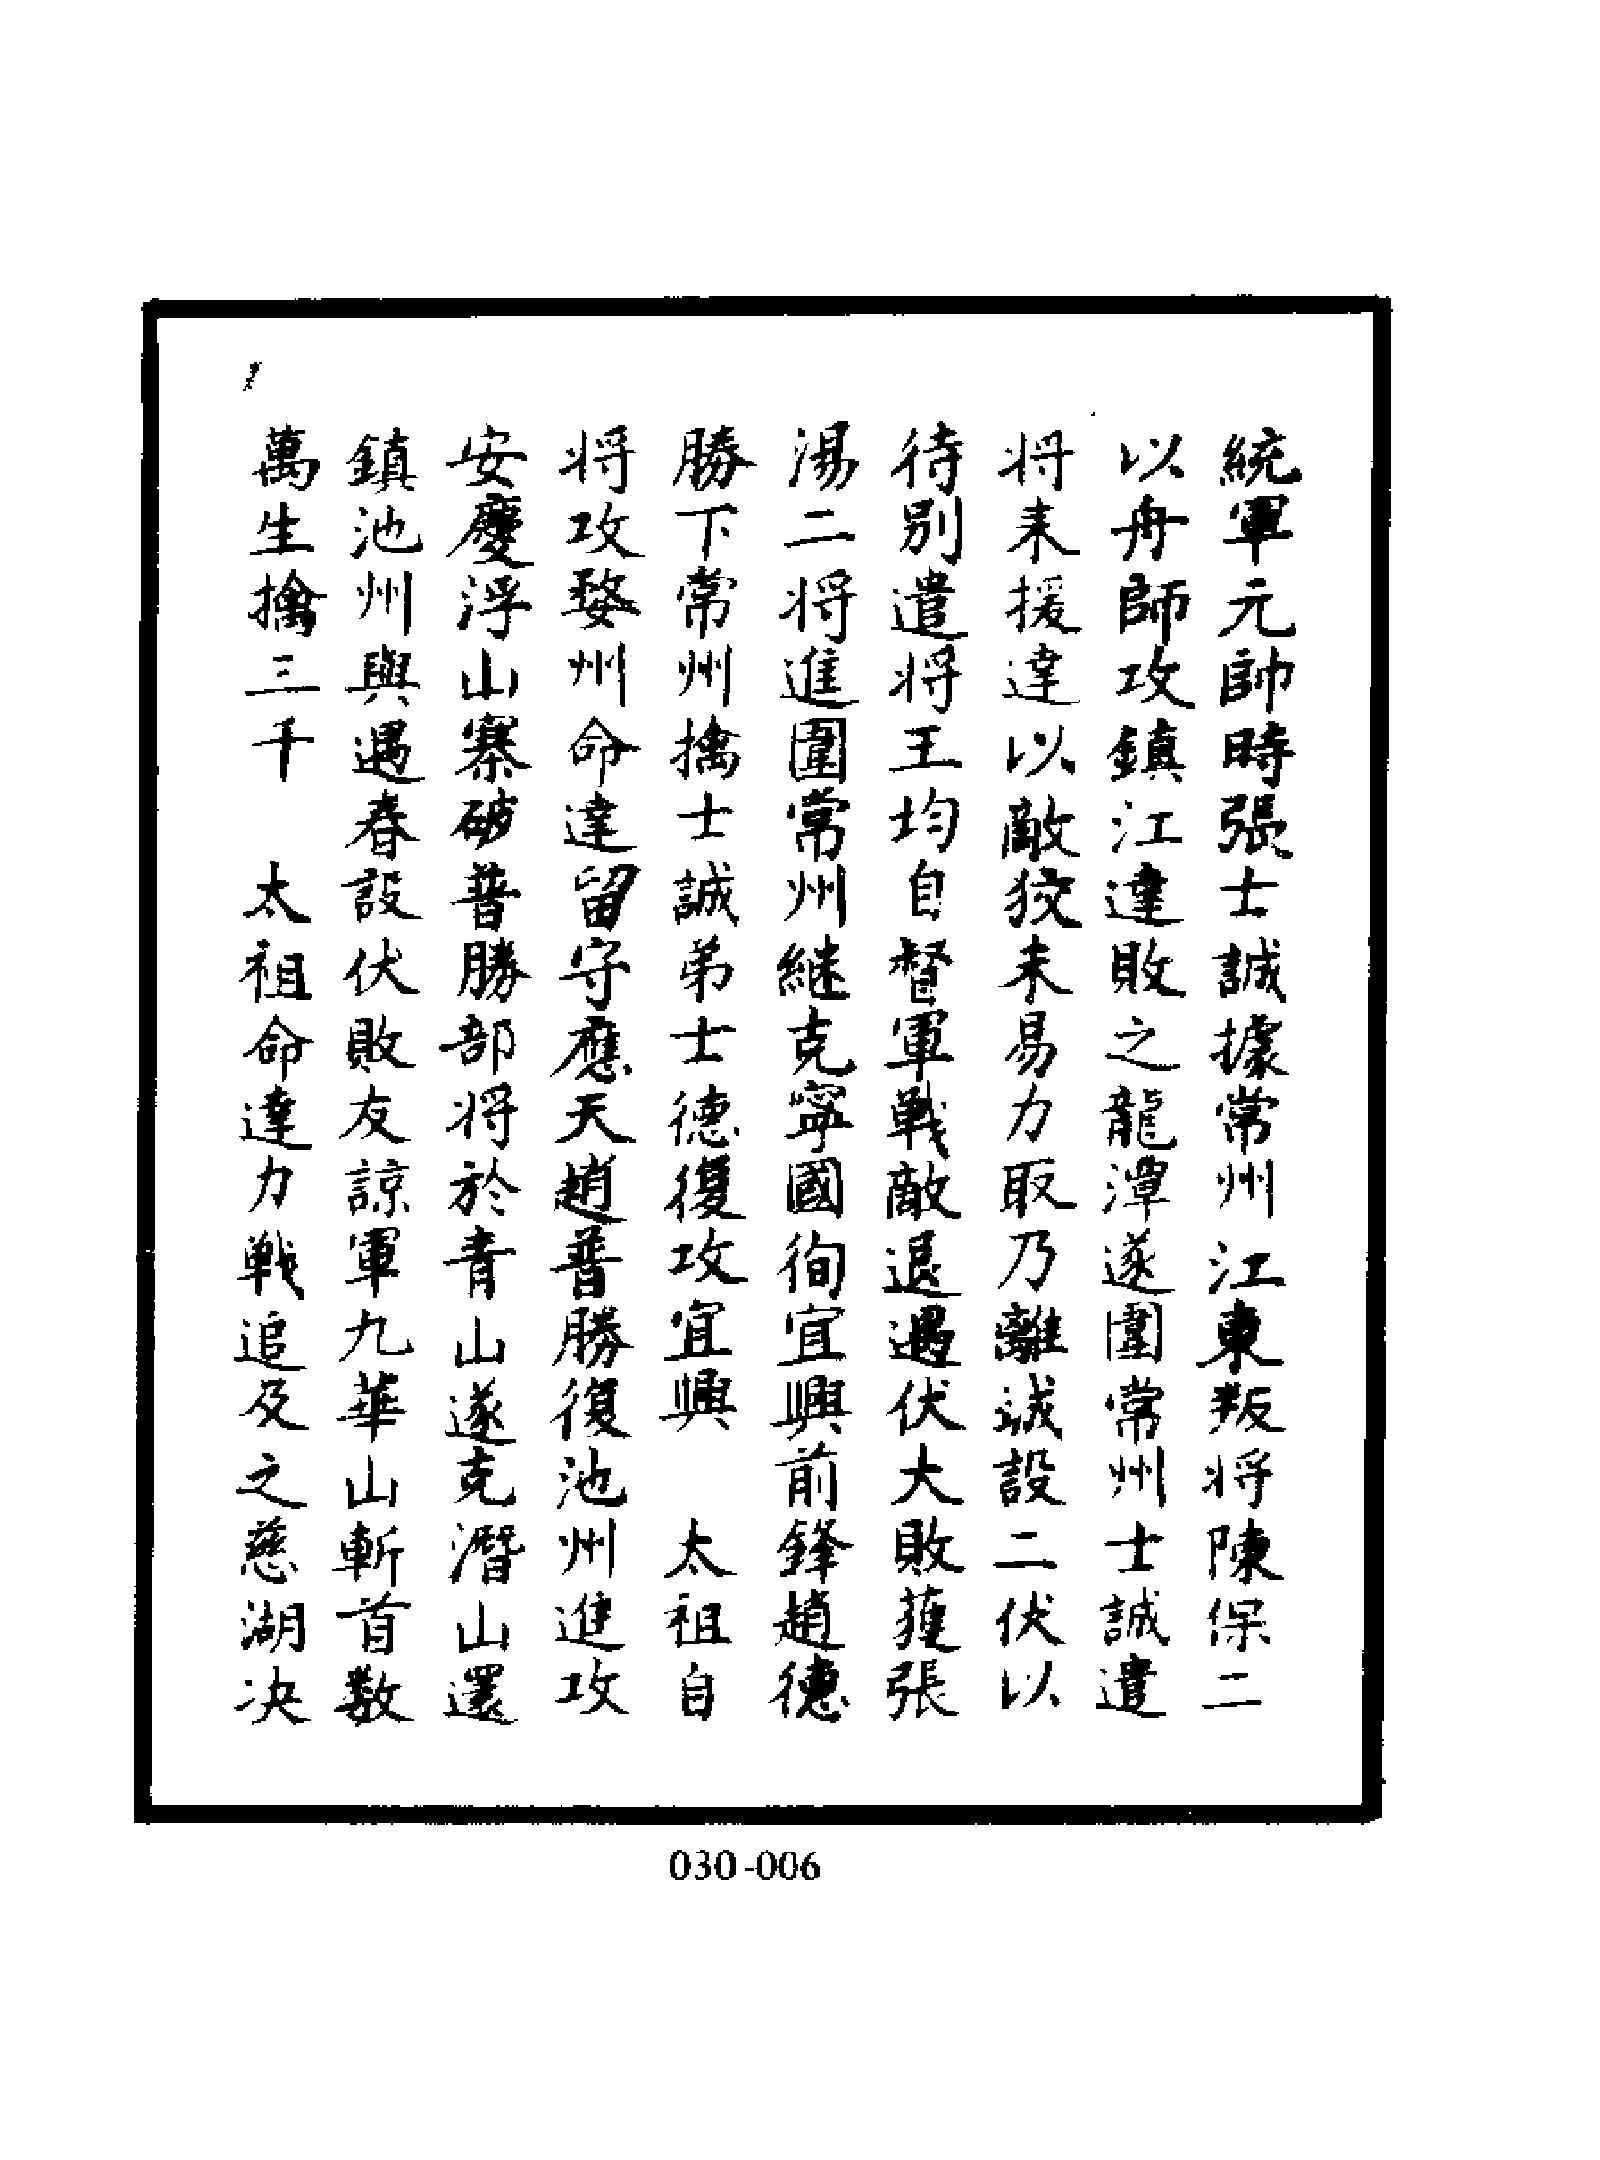 統軍元帥時張士誠據常州江東叛将陳保二
以舟師攻鎮江達敗之龍潭遂圍常州士誠遣
将来援達以敵狡未易力取乃離誠設二伏以
待别遣将王均自督軍戰敵退遇伏大敗獲張
湯二将進圍常州継克寧國徇宜興前鋒趙德
勝下常州擒士誠弟士德復攻宜興　太祖自
将攻婺州命達留守應天趙普勝復池州進攻
安慶浮山寨破普勝部将於青山遂克潛山還
鎮池州與遇春設伏敗友諒軍九華山斬首数
萬生擒三千　太祖命達力戰追及之慈湖决
030-006